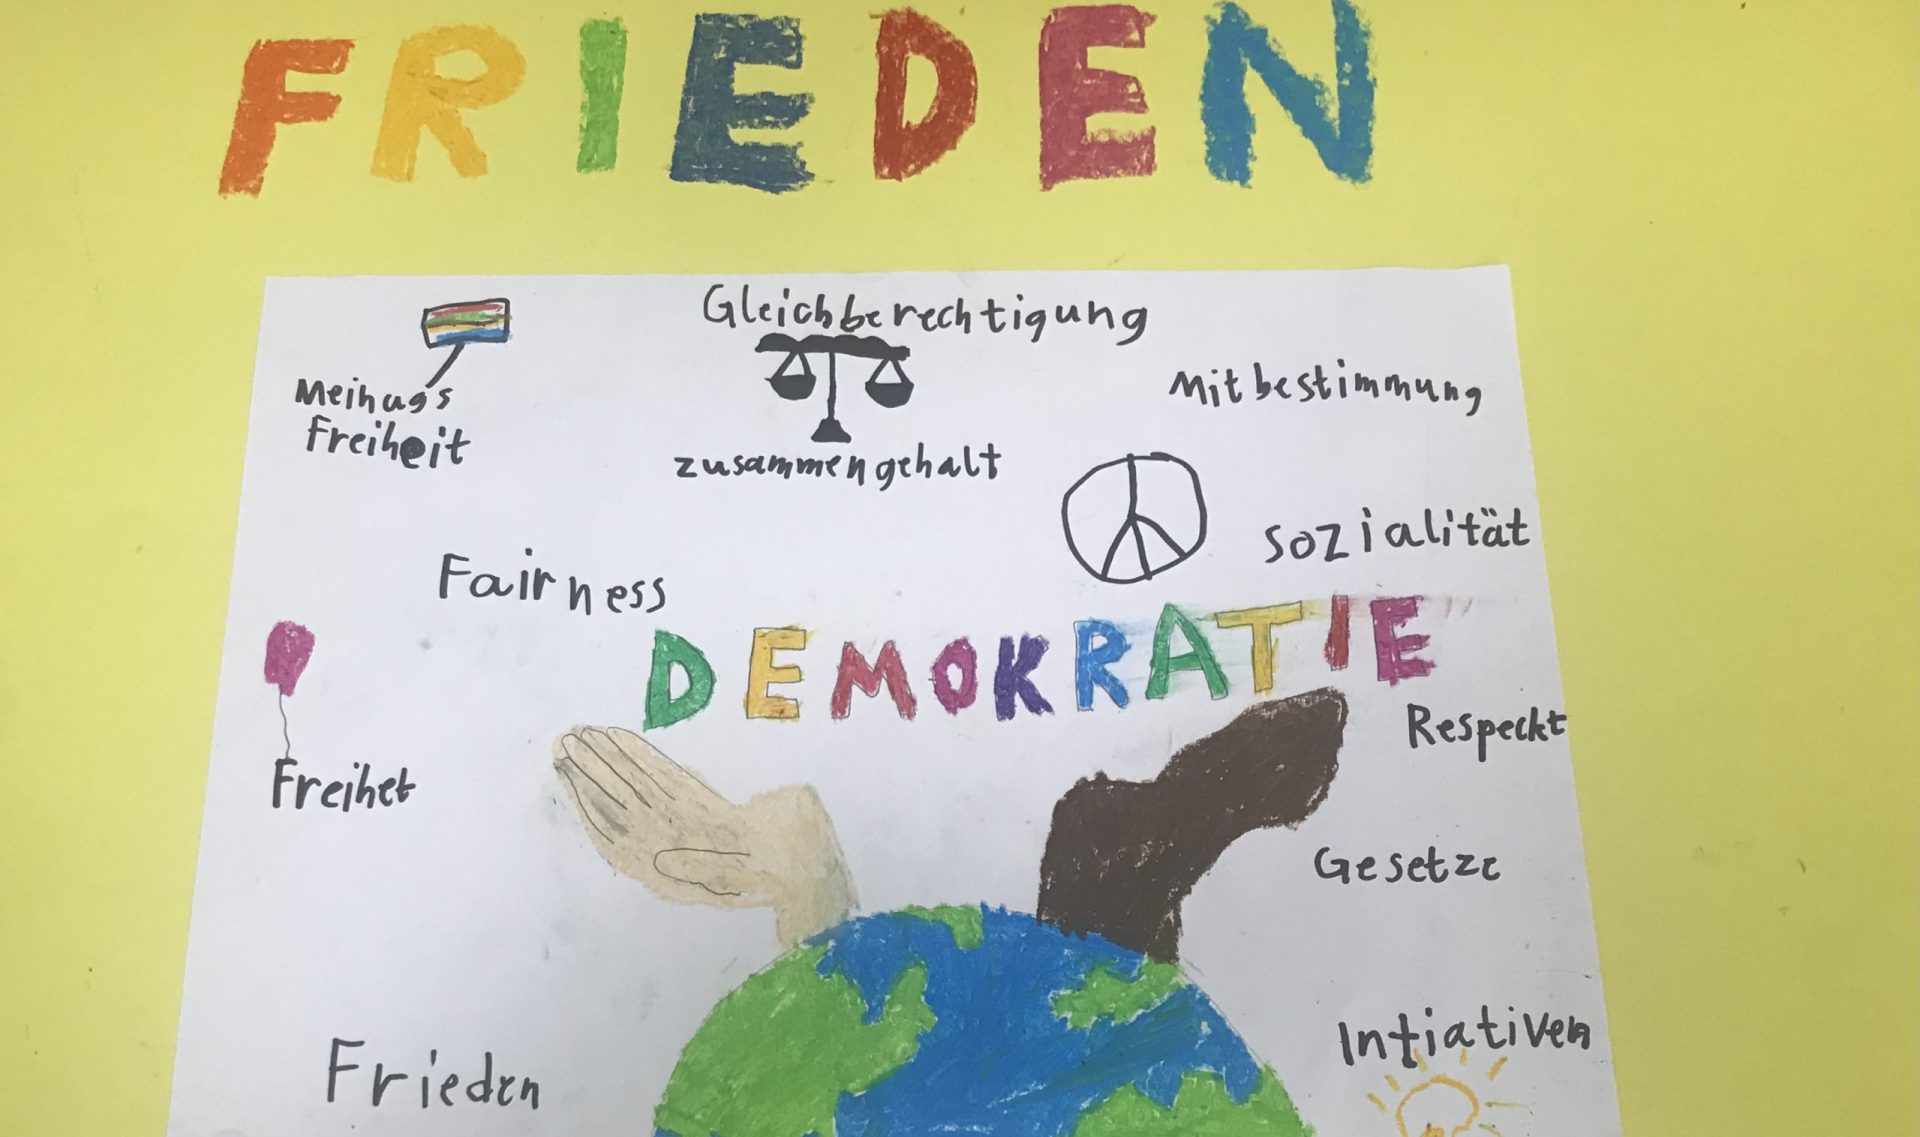 FRIEDEN
Gleichberechtigung
Mitbestimmung
Meihugs
Freiheit
zusammengehalt
Sozialität
Fairness
DEMOKRATIE
Respeckt
Freihet
Gesetze
Intiativen
Frieden